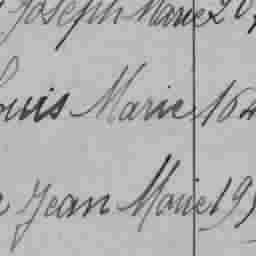 Joseph Marie 20
Louis Marie 164
Jean Marie 199